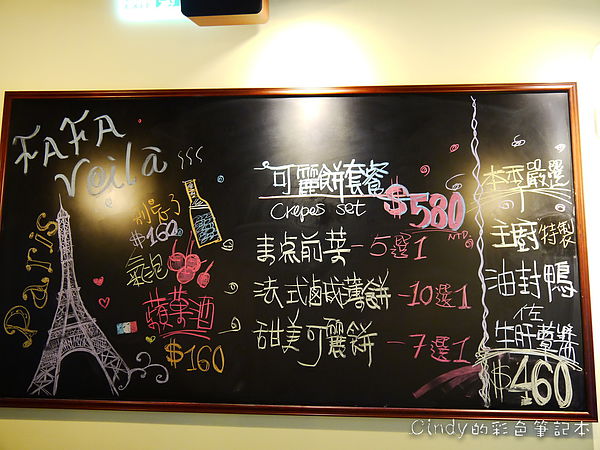 FAFA
Voilà
Paris
別忘了
$160
氣泡
蘋果酒
$160
可麗餅套餐
Crepes set
$580
NTD.
前菜-5選1
法式鹹薄餅-10選1
甜美可麗餅-7選1
本季嚴選
主廚特製
油封鴨
佐
生肝醬
$460
Cindy的彩色筆記本